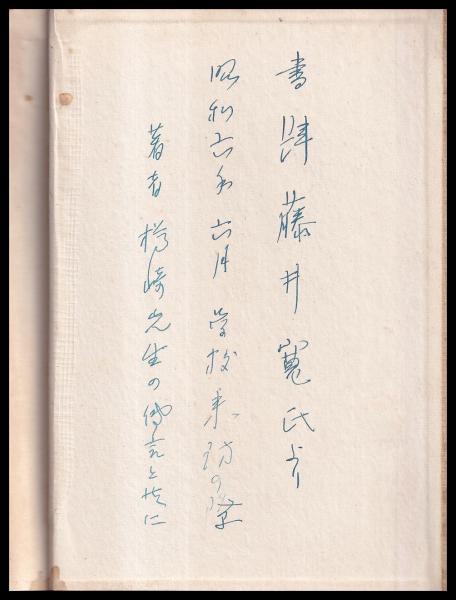 書肆藤井寛氏より
昭和六年六月学校来訪の際
著者樽崎先生の傳言と共に